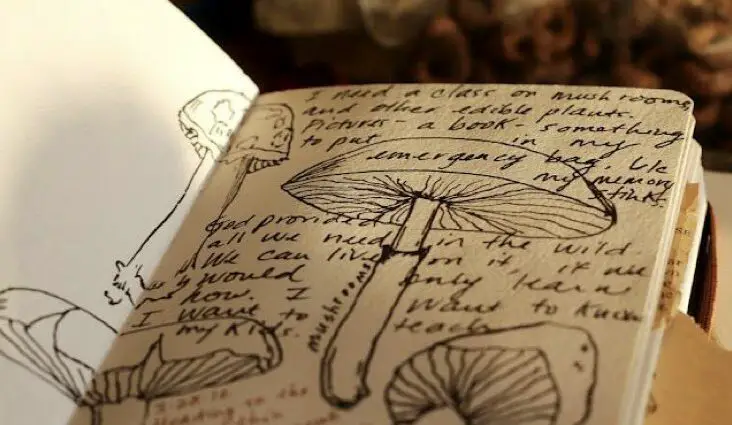 I need a class on mushrooms
and other edible plants.
Pictures - a book - something
to put in my
emergency bag b/c
my memory
stinks.
God provided
all we need in the wild.
We can live on it, if we
would only learn
how. I want to know
I want to teach
my kids.
mushrooms
Heading to the